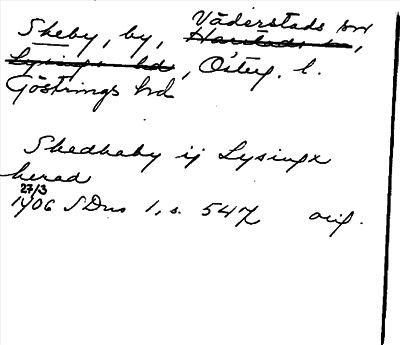 Skeby, by, Väderstads sn
Harstads sn,
Lysings hd, Österg. l.
Göstrings hd
Skedhaby ij Lysingx
herad
27/3
1406 SDns 1, s. 547 orig.